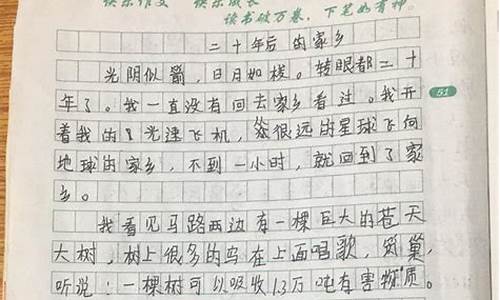 快乐作文 快乐成长
读书破万卷，下笔如有神
二十年后的家乡
光阴似箭，日月如梭。转眼都二十
年了。我一直没有回去家乡看过。我开
51
着我的8光速飞机，很远的星球飞向
地球的家乡，不到一小时，就回到了家
乡。
我看见马路两边有一棵巨大的苍天
大树，树上很多的鸟在上面唱歌，筑巢，
听说：一棵树可以吸收13万吨有害物质。